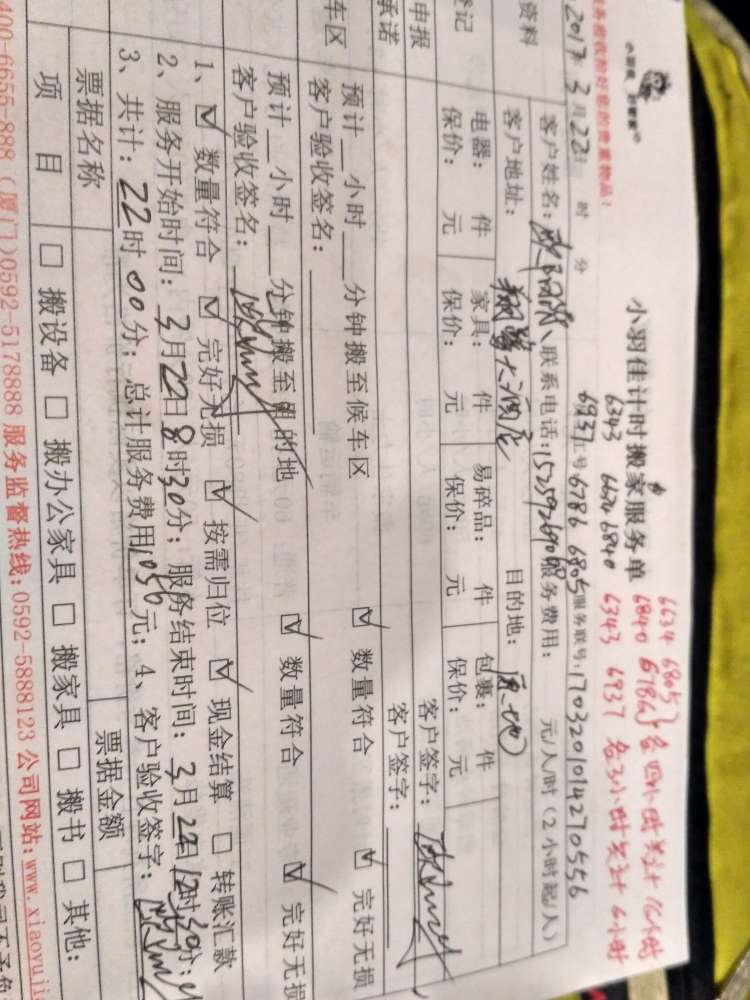 您验收好您的贵重物品！
小羽佳计时搬家服务单
6634 6805
6840 6786 各四小时 共计16小时
6343 6634 6840 6343 6937 各3小时共计6小时
6937 工号6786 6805 服务联号：170320101427 0556
2017年3月22日 时 分
资料
客户姓名： 联系电话：15259269068 服务费用： 元/人/时（2小时起/人）
客户地址：翔鹭大酒店 目的地：原地
登记
电器： 件 家具： 件 易碎品： 件 包裹： 件
保价： 元 保价： 元 保价： 元 保价： 元
申报 客户签字：
承诺 客户签字：
车区
预计__小时__分钟搬至候车区 ☑ 数量符合 ☑ 完好无损
客户验收签名：
预计__小时__分钟搬至目的地 ☑ 数量符合 ☑ 完好无损
客户验收签名：
1、☑ 数量符合 ☑ 完好无损 ☑ 按需归位 ☑ 现金结算 □ 转账汇款
2、服务开始时间：3月22日8时30分；服务结束时间：3月22日12时30分；
3、共计：22时00分；总计服务费用1056元；4、客户验收签字：
票据名称 票据金额
项 目 □ 搬设备 □ 搬办公家具 □ 搬家具 □ 搬书 □ 其他：
400-6655-888（厦门）0592-5178888 服务监督热线：0592-5888123 公司网站：www.xiaoyuji